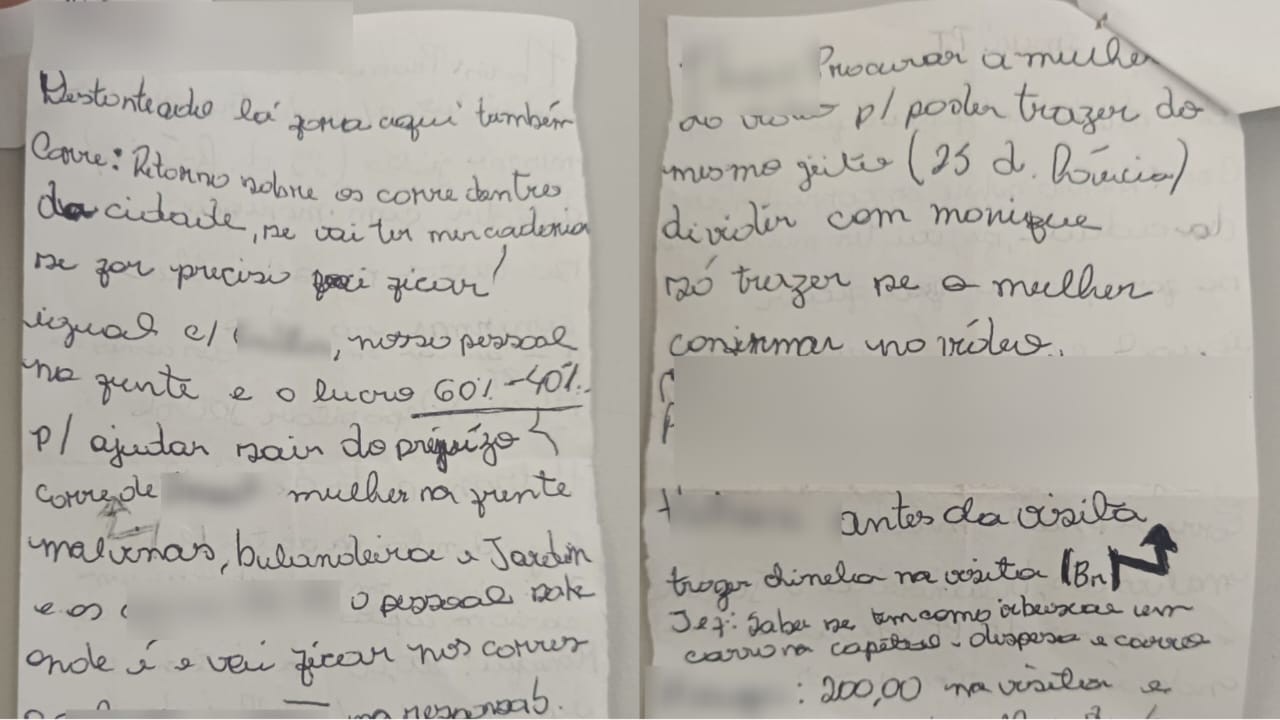 Destonteado lá fora aqui também
Corre: Ritorno sobre os corre dentro
da cidade, se vai ter mercadoria
se for preciso ficar
igual c/ , nosso pessoal
na frente e o lucro 60% - 40%
p/ ajudar sair do prejuízo
corre de mulher na frente
malvinas, bulandeira e Jardim
e os o pessoal sabe
onde é e vai ficar nos corres
na responsab.
Procurar a mulher
do p/ poder trazer do
mesmo jeito (25 d. )
dividir com monique
só trazer se a mulher
confirmar no vídeo.
antes da visita
trazer chinelo na visita (Bn)
Jef: Saber se tem como ir buscar um
carro na capital. dispesa e carro
: 200,00 na visita e